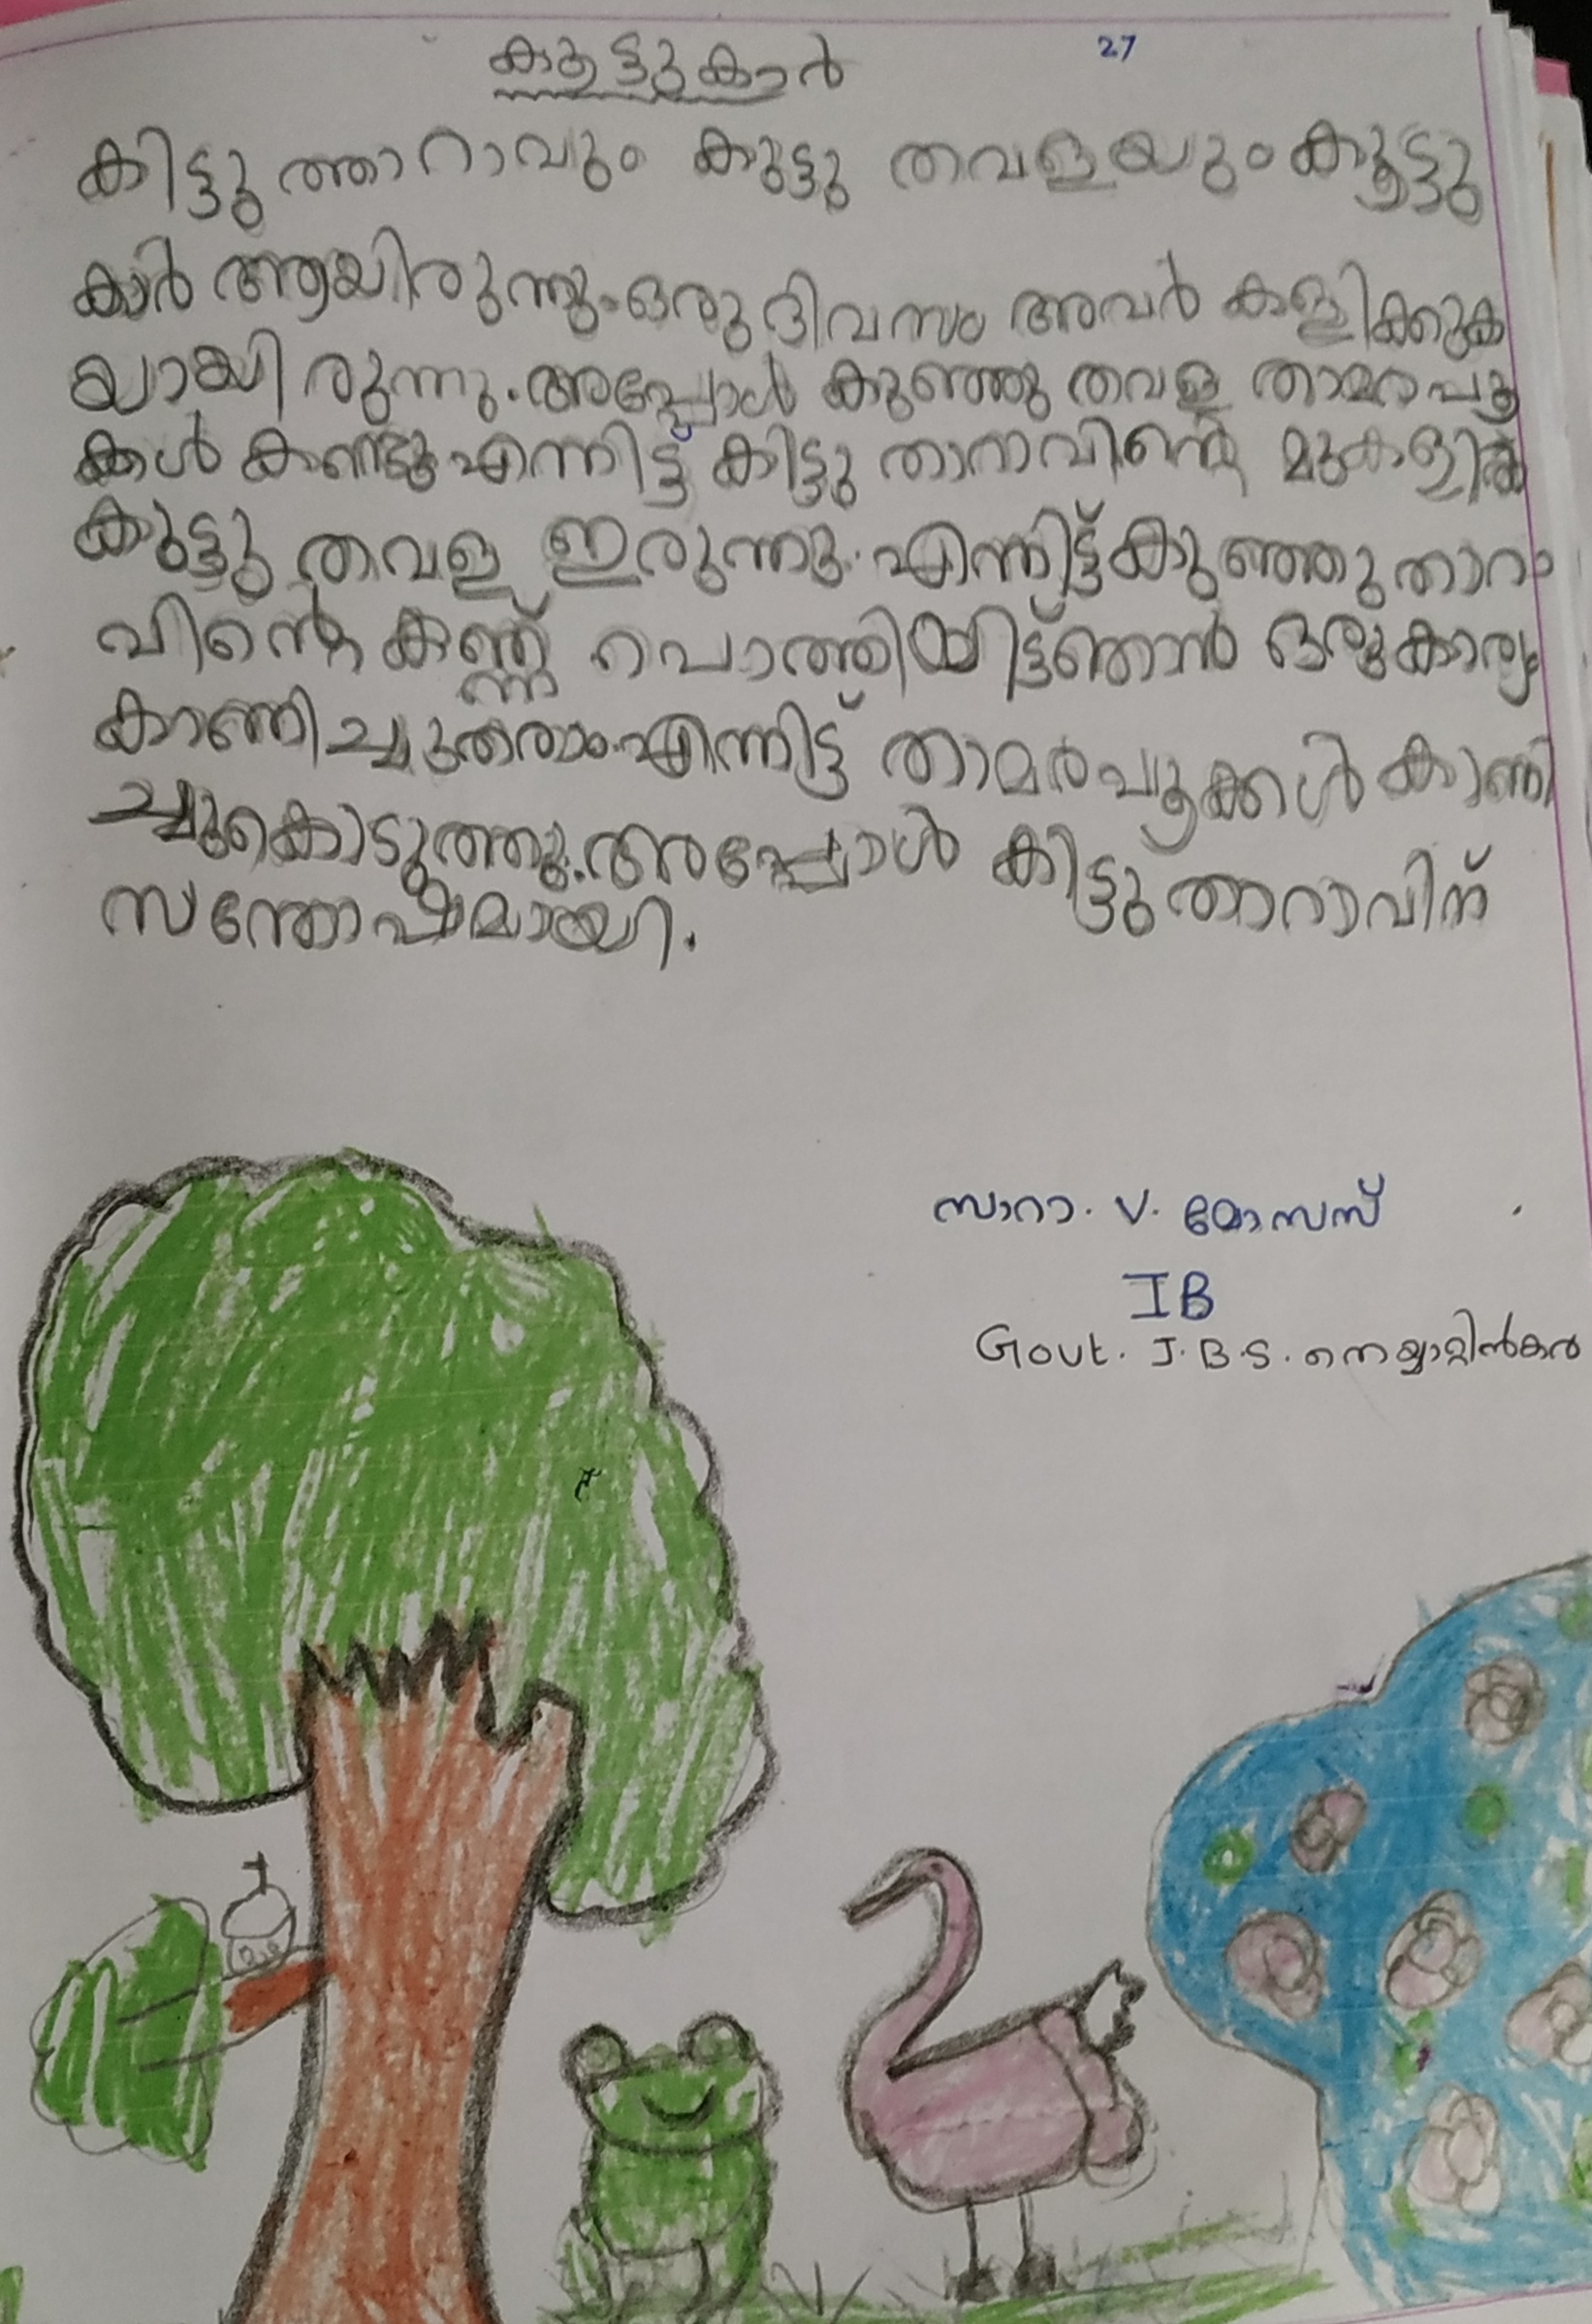 കൂട്ടുകാർ
27
കിട്ടു ത്താറാവും കുട്ടു തവളയും കൂട്ടു
കാർ ആയിരുന്നു. ഒരു ദിവസം അവർ കളിക്കുക
യായി രുന്നു. അപ്പോൾ കുഞ്ഞു തവള താമര പൂ
ക്കൾ കണ്ടു എന്നിട്ട് കിട്ടു താറാവിന്റെ മുകളിൽ
കുട്ടു തവള ഇരുന്നു. എന്നിട്ട് കുഞ്ഞു താറാ
വിന്റെ കണ്ണ് പൊത്തിയിട്ട് ഞാൻ ഒരു കാര്യം
കാണിച്ചുതരാം. എന്നിട്ട് താമര പൂക്കൾ കാണി
ച്ചുകൊടുത്തു. അപ്പോൾ കിട്ടു ത്താറാവിന്
സന്തോഷമായി.
സാറാ. V. മോസസ്
I B
Govt. J.B.S. നെയ്യാറ്റിൻകര